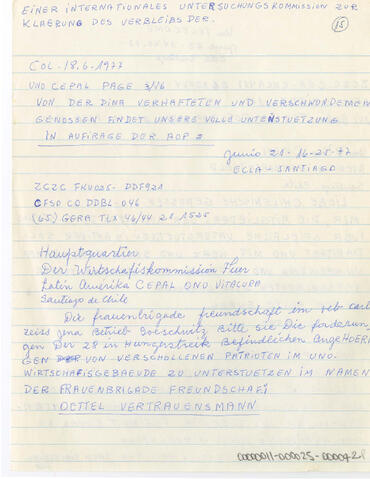 EINER INTERNATIONALES UNTERSUCHUNGSKOMMISSION ZUR
KLAERUNG DES VERBLEIBS DER.
15
COL. 18.6.1977
UNO CEPAL PAGE 3/16
VON DER DINA VERHAFTETEN UND VERSCHWONDEMEN
GENOSSEN FINDET UNSERE VOLLE UNTENSTUETZUNG
IN AUFTRAGE DER AOP 2
junio 21-16-25-77
ECLA-SANTIAGO
ZCZC FKU025- DDF921
CFSO CO DDBL-046
(65) GERA TLX 46/44 21 1525
Hauptquartier
Der Wirtschafiskommission Fuer
Latin Amerika CEPAL ONU VITACURA
Santiago de Chile
Die frauenbrigade freundschaft im veb carl
zeiss jena Betrieb Goeschwitz Bitte sie Die forderun
gen Der 28 in Hungerstreik Befindlichen AngeHOERI
GEN VON VERSCHOLLENEN PATRIOTEN IM UNO.
WIRTSCHAFISGEBAEUDE ZU UNTERSTUETZEN IM NAMEN
DER FRAUENBRIGADE FREUNDSCHAFI
OCTTEL VERTRAUENSMANN
0000011-000025-000042